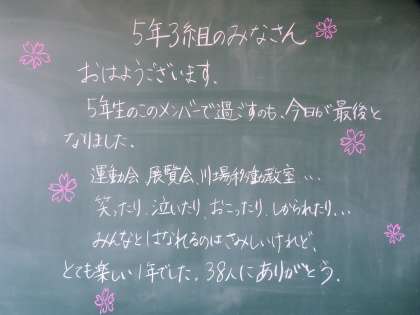 5年3組のみなさん
おはようございます.
5年生のこのメンバーで過ごすのも、今日が最後と
なりました.
運動会、展覧会、川場移動教室…
笑ったり、泣いたり、おこったり、しかられたり…
みんなとはなれるのはさみしいけれど、
とても楽しい1年でした. 38人にありがとう.